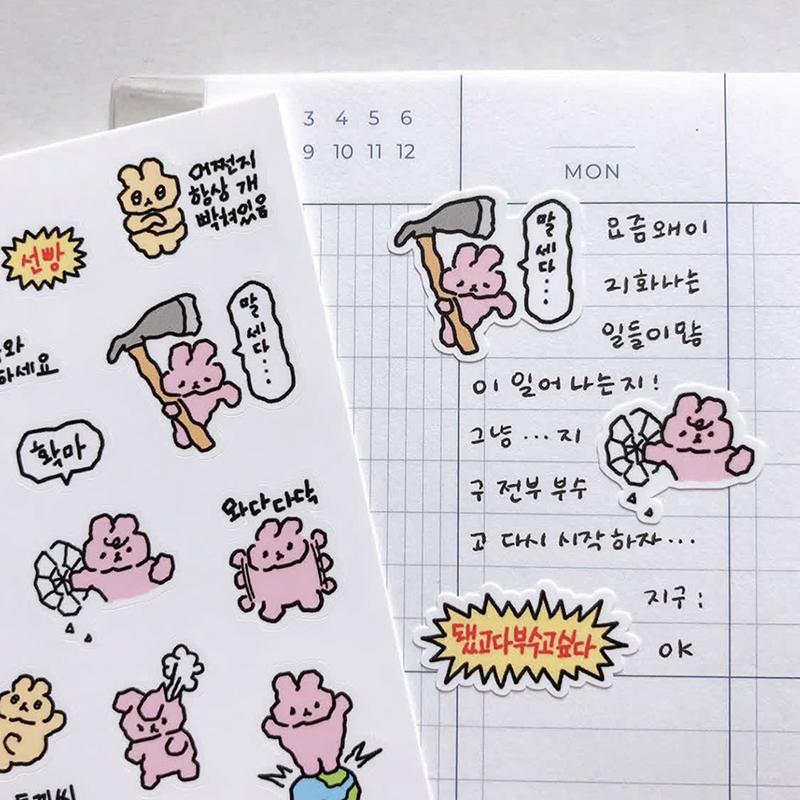 어쩐지
항상 개
빡쳐있음
선빵
말세다...
하세요
확마
와다다닥
3 4 5 6
9 10 11 12
MON
말세다...
요즘 왜 이
리 화나는
일들이 많
이 일어나는지!
그냥 ... 지
구 전부 부수
고 다시 시작하자...
지구:
OK
됐고다부수고싶다